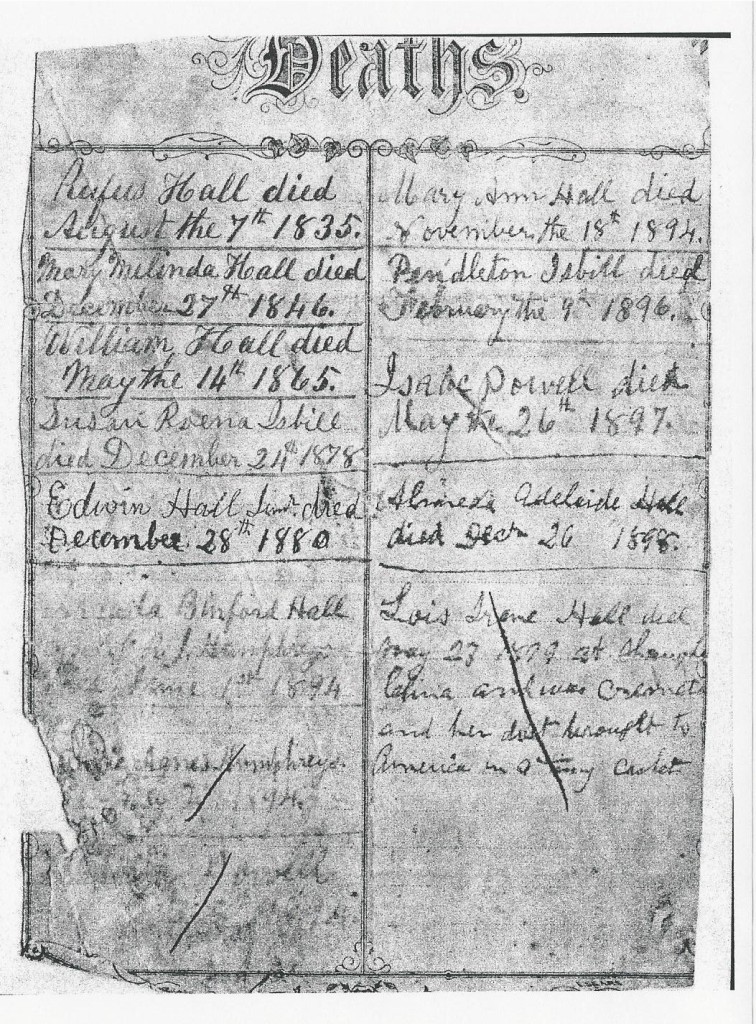 Deaths.
Rufus Hall died
August the 7th 1835.
Mary Milinda Hall died
December 27th 1846.
William Hall died
May the 14th 1865.
Susan Roena Isbill
died December 24th 1878
Edwin Hall Senr died
December 28th 1880
Binford Hall
J. Humphreys
June 1894
Agnes Humphreys.
94.
Powell
Mary Ann Hall died
November the 18th 1894.
Pendleton Isbill died
February the 9th 1896.
Isaac Powell died
May the 26th 1897.
Almeda Adelaide Hall
died Decr 26 1898.
Lois Irene Hall died
May 23 at
China and was Cremated
and her dust brought to
America in a tiny casket